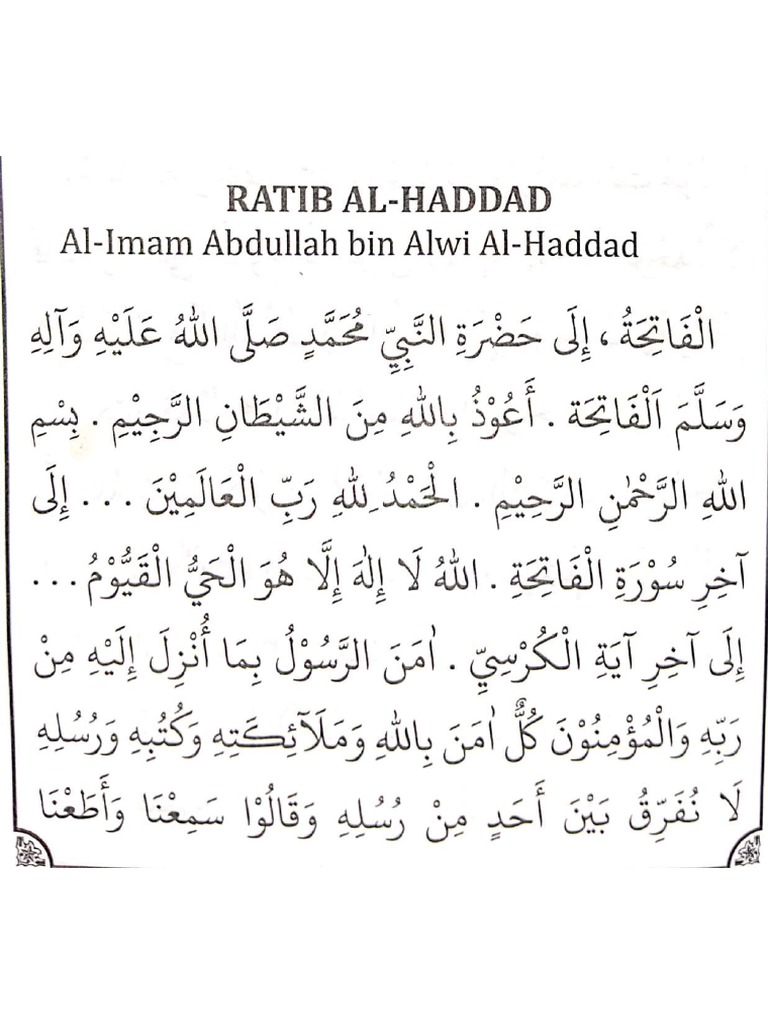 RATIB AL-HADDAD
Al-Imam Abdullah bin Alwi Al-Haddad
الْفَاتِحَةُ ، إِلَى حَضْرَةِ النَّبِيِّ مُحَمَّدٍ صَلَّى اللهُ عَلَيْهِ وَآلِهِ
وَسَلَّمَ اَلْفَاتِحَة . أَعُوْذُ بِاللهِ مِنَ الشَّيْطَانِ الرَّجِيْمِ . بِسْمِ
اللهِ الرَّحْمٰنِ الرَّحِيْمِ . الْحَمْدُ لِلهِ رَبِّ الْعَالَمِيْنَ ... إِلَى
آخِرِ سُوْرَةِ الْفَاتِحَةِ . اللهُ لَا إِلٰهَ إِلَّا هُوَ الْحَيُّ الْقَيُّوْمُ ...
إِلَى آخِرِ آيَةِ الْكُرْسِيِّ . اٰمَنَ الرَّسُوْلُ بِمَا أُنْزِلَ إِلَيْهِ مِنْ
رَبِّهِ وَالْمُؤْمِنُوْنَ كُلٌّ اٰمَنَ بِاللهِ وَمَلَآئِكَتِهِ وَكُتُبِهِ وَرُسُلِهِ
لَا نُفَرِّقُ بَيْنَ أَحَدٍ مِنْ رُسُلِهِ وَقَالُوْا سَمِعْنَا وَأَطَعْنَا